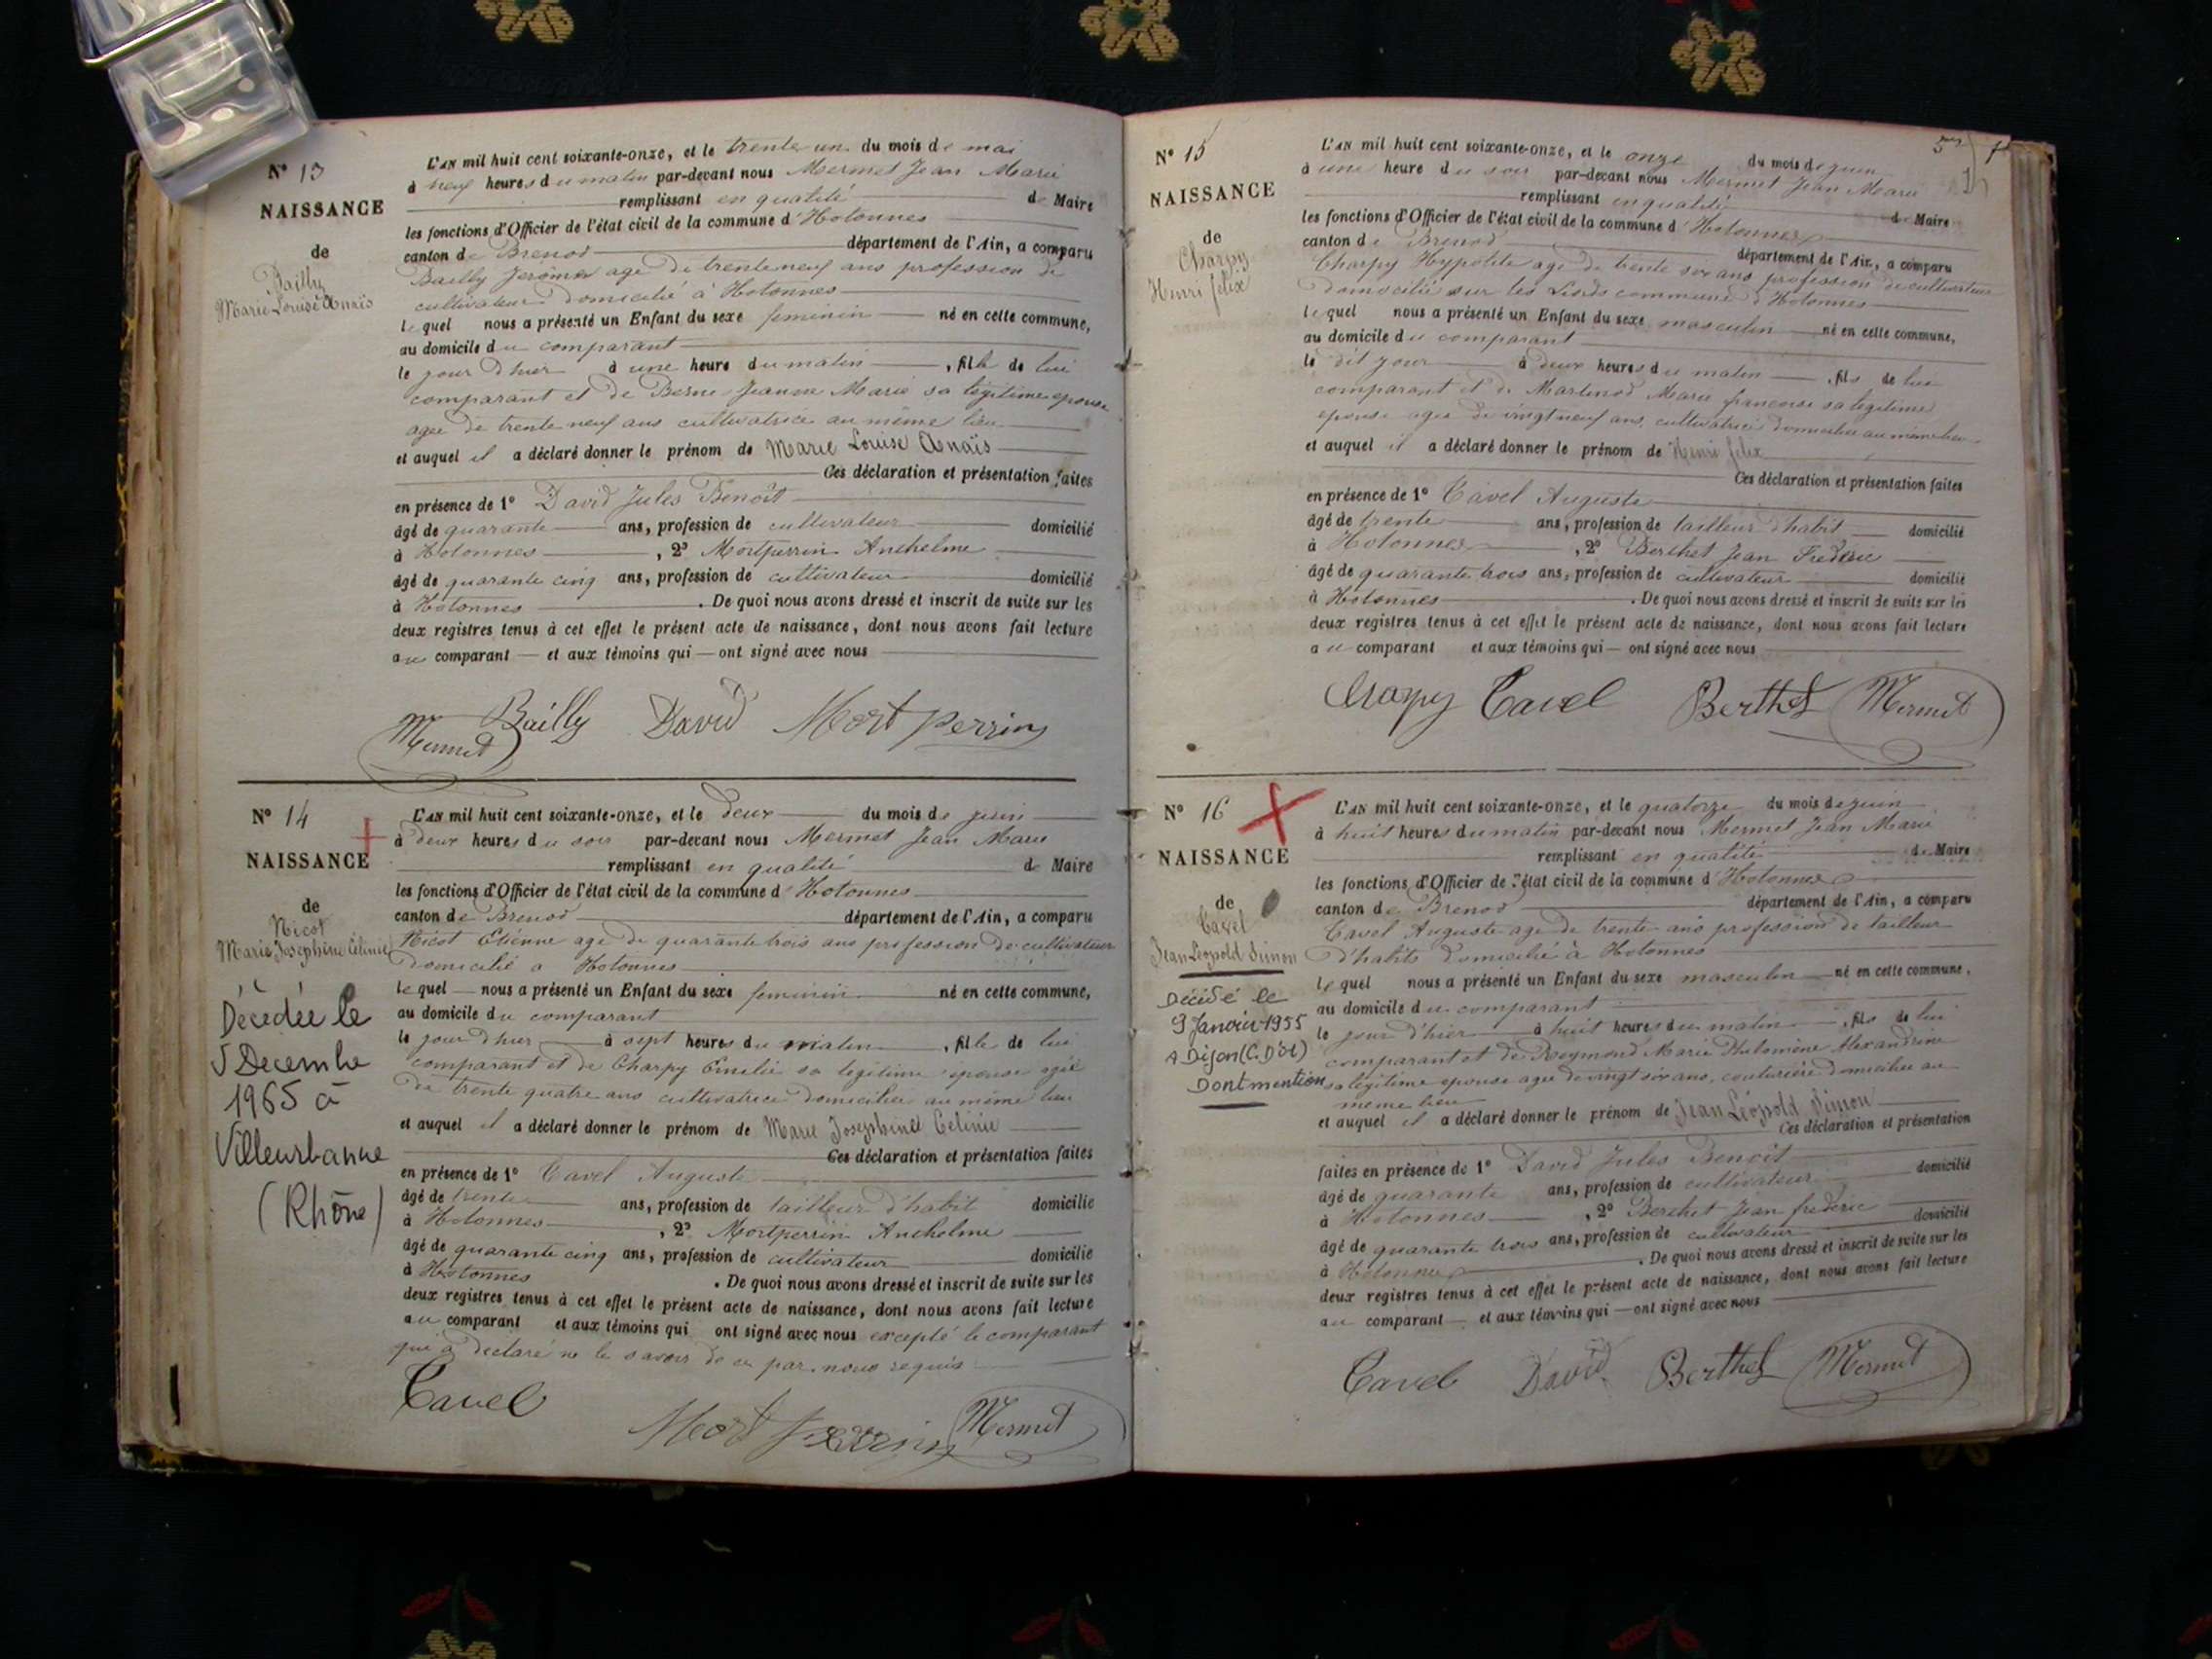 N° 13
NAISSANCE
de
Bailly
Marie Louise Anaïs
L'AN mil huit cent soixante-onze, et le trente un du mois de mai
à neuf heures du matin par-devant nous Mermet Jean Marie
remplissant en qualité de Maire
les fonctions d'Officier de l'état civil de la commune d'Hotonnes
canton de Brenod département de l'Ain, a comparu
Bailly Jerôme agé de trente neuf ans profession de
cultivateur domicilié à Hotonnes
lequel nous a présenté un Enfant du sexe feminin né en cette commune,
au domicile du comparant
le jour d'hier à une heure du matin, fille de lui
comparant et de Berne Jeanne Marie sa légitime epouse
agée de trente neuf ans cultivatrice au même lieu
et auquel il a déclaré donner le prénom de Marie Louise Anaïs
Ces déclaration et présentation faites
en présence de 1° David Jules Benoît
âgé de quarante ans, profession de cultivateur domicilié
à Hotonnes, 2° Mortperrin Anthelme
âgé de quarante cinq ans, profession de cultivateur domicilié
à Hotonnes. De quoi nous avons dressé et inscrit de suite sur les
deux registres tenus à cet effet le présent acte de naissance, dont nous avons fait lecture
au comparant et aux témoins qui ont signé avec nous
Bailly David Mortperrin
Mermet
N° 14
NAISSANCE
de
Nicot
Marie Joséphine Célinie
Décédée le
5 Decembre
1965 à
Villeurbanne
(Rhône)
L'AN mil huit cent soixante-onze, et le deux du mois de juin
à deux heures du soir par-devant nous Mermet Jean Marie
remplissant en qualité de Maire
les fonctions d'Officier de l'état civil de la commune d'Hotonnes
canton de Brenod département de l'Ain, a comparu
Nicot Etienne agé de quarante trois ans profession de cultivateur
domicilié a Hotonnes
lequel nous a présenté un Enfant du sexe feminin né en cette commune,
au domicile du comparant
le jour d'hier à sept heures du matin, fille de lui
comparant et de Charpy Emelie sa legitime epouse agée
de trente quatre ans cultivatrice domiciliée au même lieu
et auquel il a déclaré donner le prénom de Marie Josephine Célinie
Ces déclaration et présentation faites
en présence de 1° Cavel Auguste
âgé de trente ans, profession de tailleur d'habit domicilié
à Hotonnes, 2° Mortperrin Anthelme
âgé de quarante cinq ans, profession de cultivateur domicilié
à Hotonnes. De quoi nous avons dressé et inscrit de suite sur les
deux registres tenus à cet effet le présent acte de naissance, dont nous avons fait lecture
au comparant et aux témoins qui ont signé avec nous excepté le comparant
qui a declaré ne le savoir de ce par nous requis
Cavel Mortperrin Mermet
N° 15
NAISSANCE
de
Charpy
Henri félix
L'AN mil huit cent soixante-onze, et le onze du mois de juin
à une heure du soir par-devant nous Mermet Jean Marie
remplissant en qualité de Maire
les fonctions d'Officier de l'état civil de la commune d'Hotonnes
canton de Brenod département de l'Ain, a comparu
Charpy Hypolite agé de trente six ans profession de cultivateur
domicilié sur les commune d'Hotonnes
lequel nous a présenté un Enfant du sexe masculin né en cette commune,
au domicile du comparant
le dit jour à deux heures du matin, fils de lui
comparant et de Martinod Marie françoise sa legitime
epouse agée de vingt neuf ans, cultivatrice domiciliée au même lieu
et auquel il a déclaré donner le prénom de Henri félix
Ces déclaration et présentation faites
en présence de 1° Cavel Auguste
âgé de trente ans, profession de tailleur d'habit domicilié
à Hotonnes, 2° Berthet Jean Frederic
âgé de quarante trois ans, profession de cultivateur domicilié
à Hotonnes. De quoi nous avons dressé et inscrit de suite sur les
deux registres tenus à cet effet le présent acte de naissance, dont nous avons fait lecture
au comparant et aux témoins qui ont signé avec nous
Charpy Cavel Berthet Mermet
N° 16
NAISSANCE
de
Cavel
Jean Léopold Simon
Décédé le
9 Janvier 1955
à Dijon (C. D'Or)
Dont mention
L'AN mil huit cent soixante-onze, et le quatorze du mois de juin
à huit heures du matin par-devant nous Mermet Jean Marie
remplissant en qualité de Maire
les fonctions d'Officier de l'état civil de la commune d'Hotonnes
canton de Brenod département de l'Ain, a comparu
Cavel Auguste age de trente ans profession de tailleur
d'habits domicilié à Hotonnes
lequel nous a présenté un Enfant du sexe masculin né en cette commune,
au domicile du comparant
le jour d'hier à huit heures du matin, fils de lui
comparant et de Reymond Marie Philomène Alexandrine
sa légitime epouse agee de vingt six ans, couturière domiciliée au
meme lieu
et auquel il a déclaré donner le prénom de Jean Léopold Simon
Ces déclaration et présentation
faites en présence de 1° David Jules Benoît
âgé de quarante ans, profession de cultivateur domicilié
à Hotonnes, 2° Berthet Jean frederic
âgé de quarante trois ans, profession de cultivateur domicilié
à Hotonnes. De quoi nous avons dressé et inscrit de suite sur les
deux registres tenus à cet effet le présent acte de naissance, dont nous avons fait lecture
au comparant et aux témoins qui ont signé avec nous
Cavel David Berthet Mermet